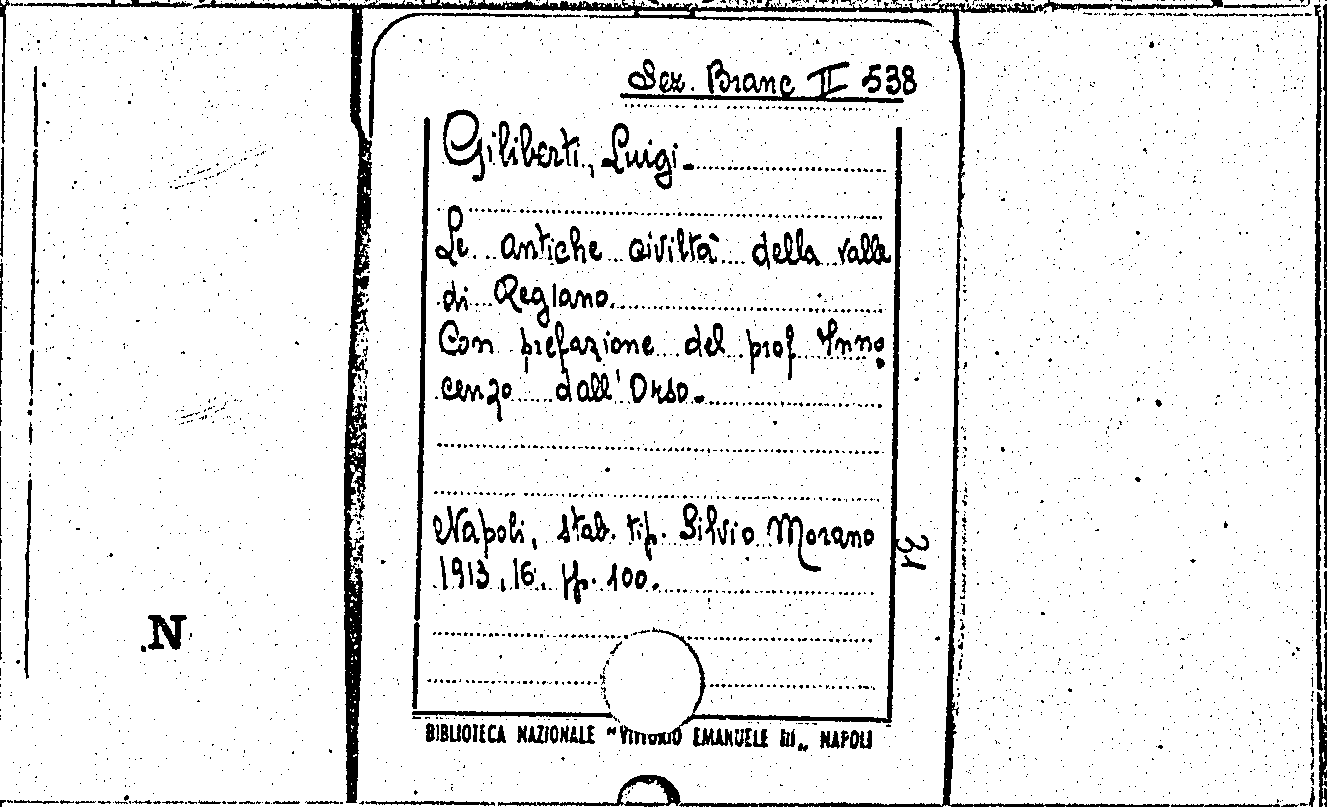 Sez. Branc II 538
Giliberti, Luigi.
Le antiche civiltà della valle
di Regiano.
Con prefazione del prof Inno
cenzo dall'Orso.
Napoli, stab. tip. Silvio Morano
1913, 16, pp. 100.
31
N
BIBLIOTECA NAZIONALE "VITTORIO EMANUELE III„ NAPOLI